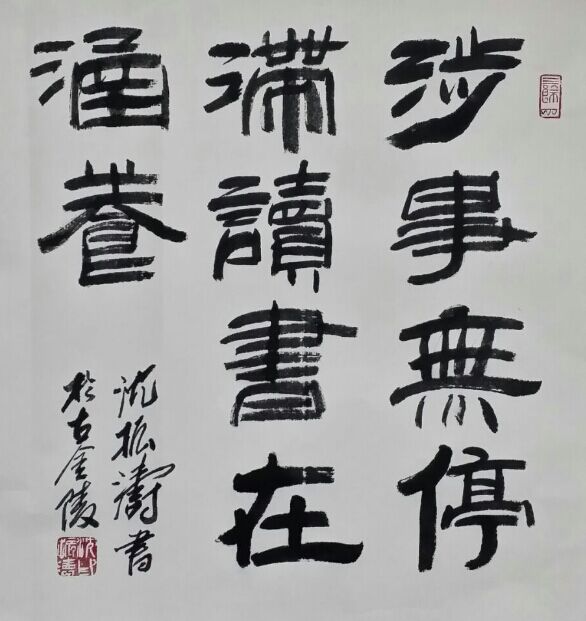 涉事無停
滯讀書在
涵養
沈振濤書
於古金陵